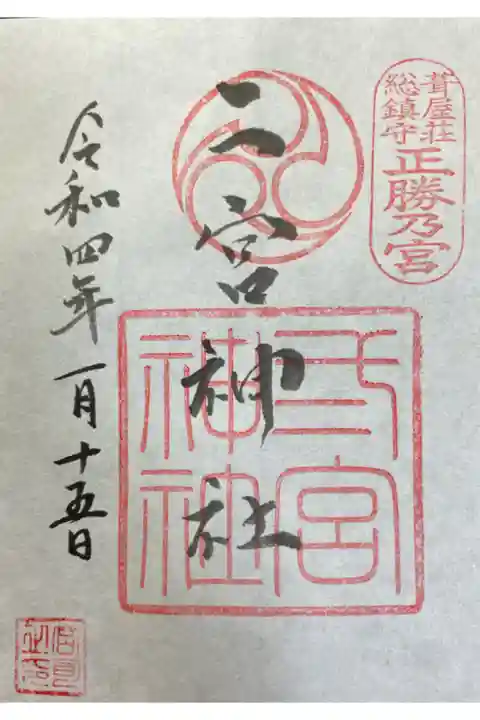 葺屋荘
総鎮守
正勝乃宮
二宮神社
弎宮
神社
令和四年一月十五日